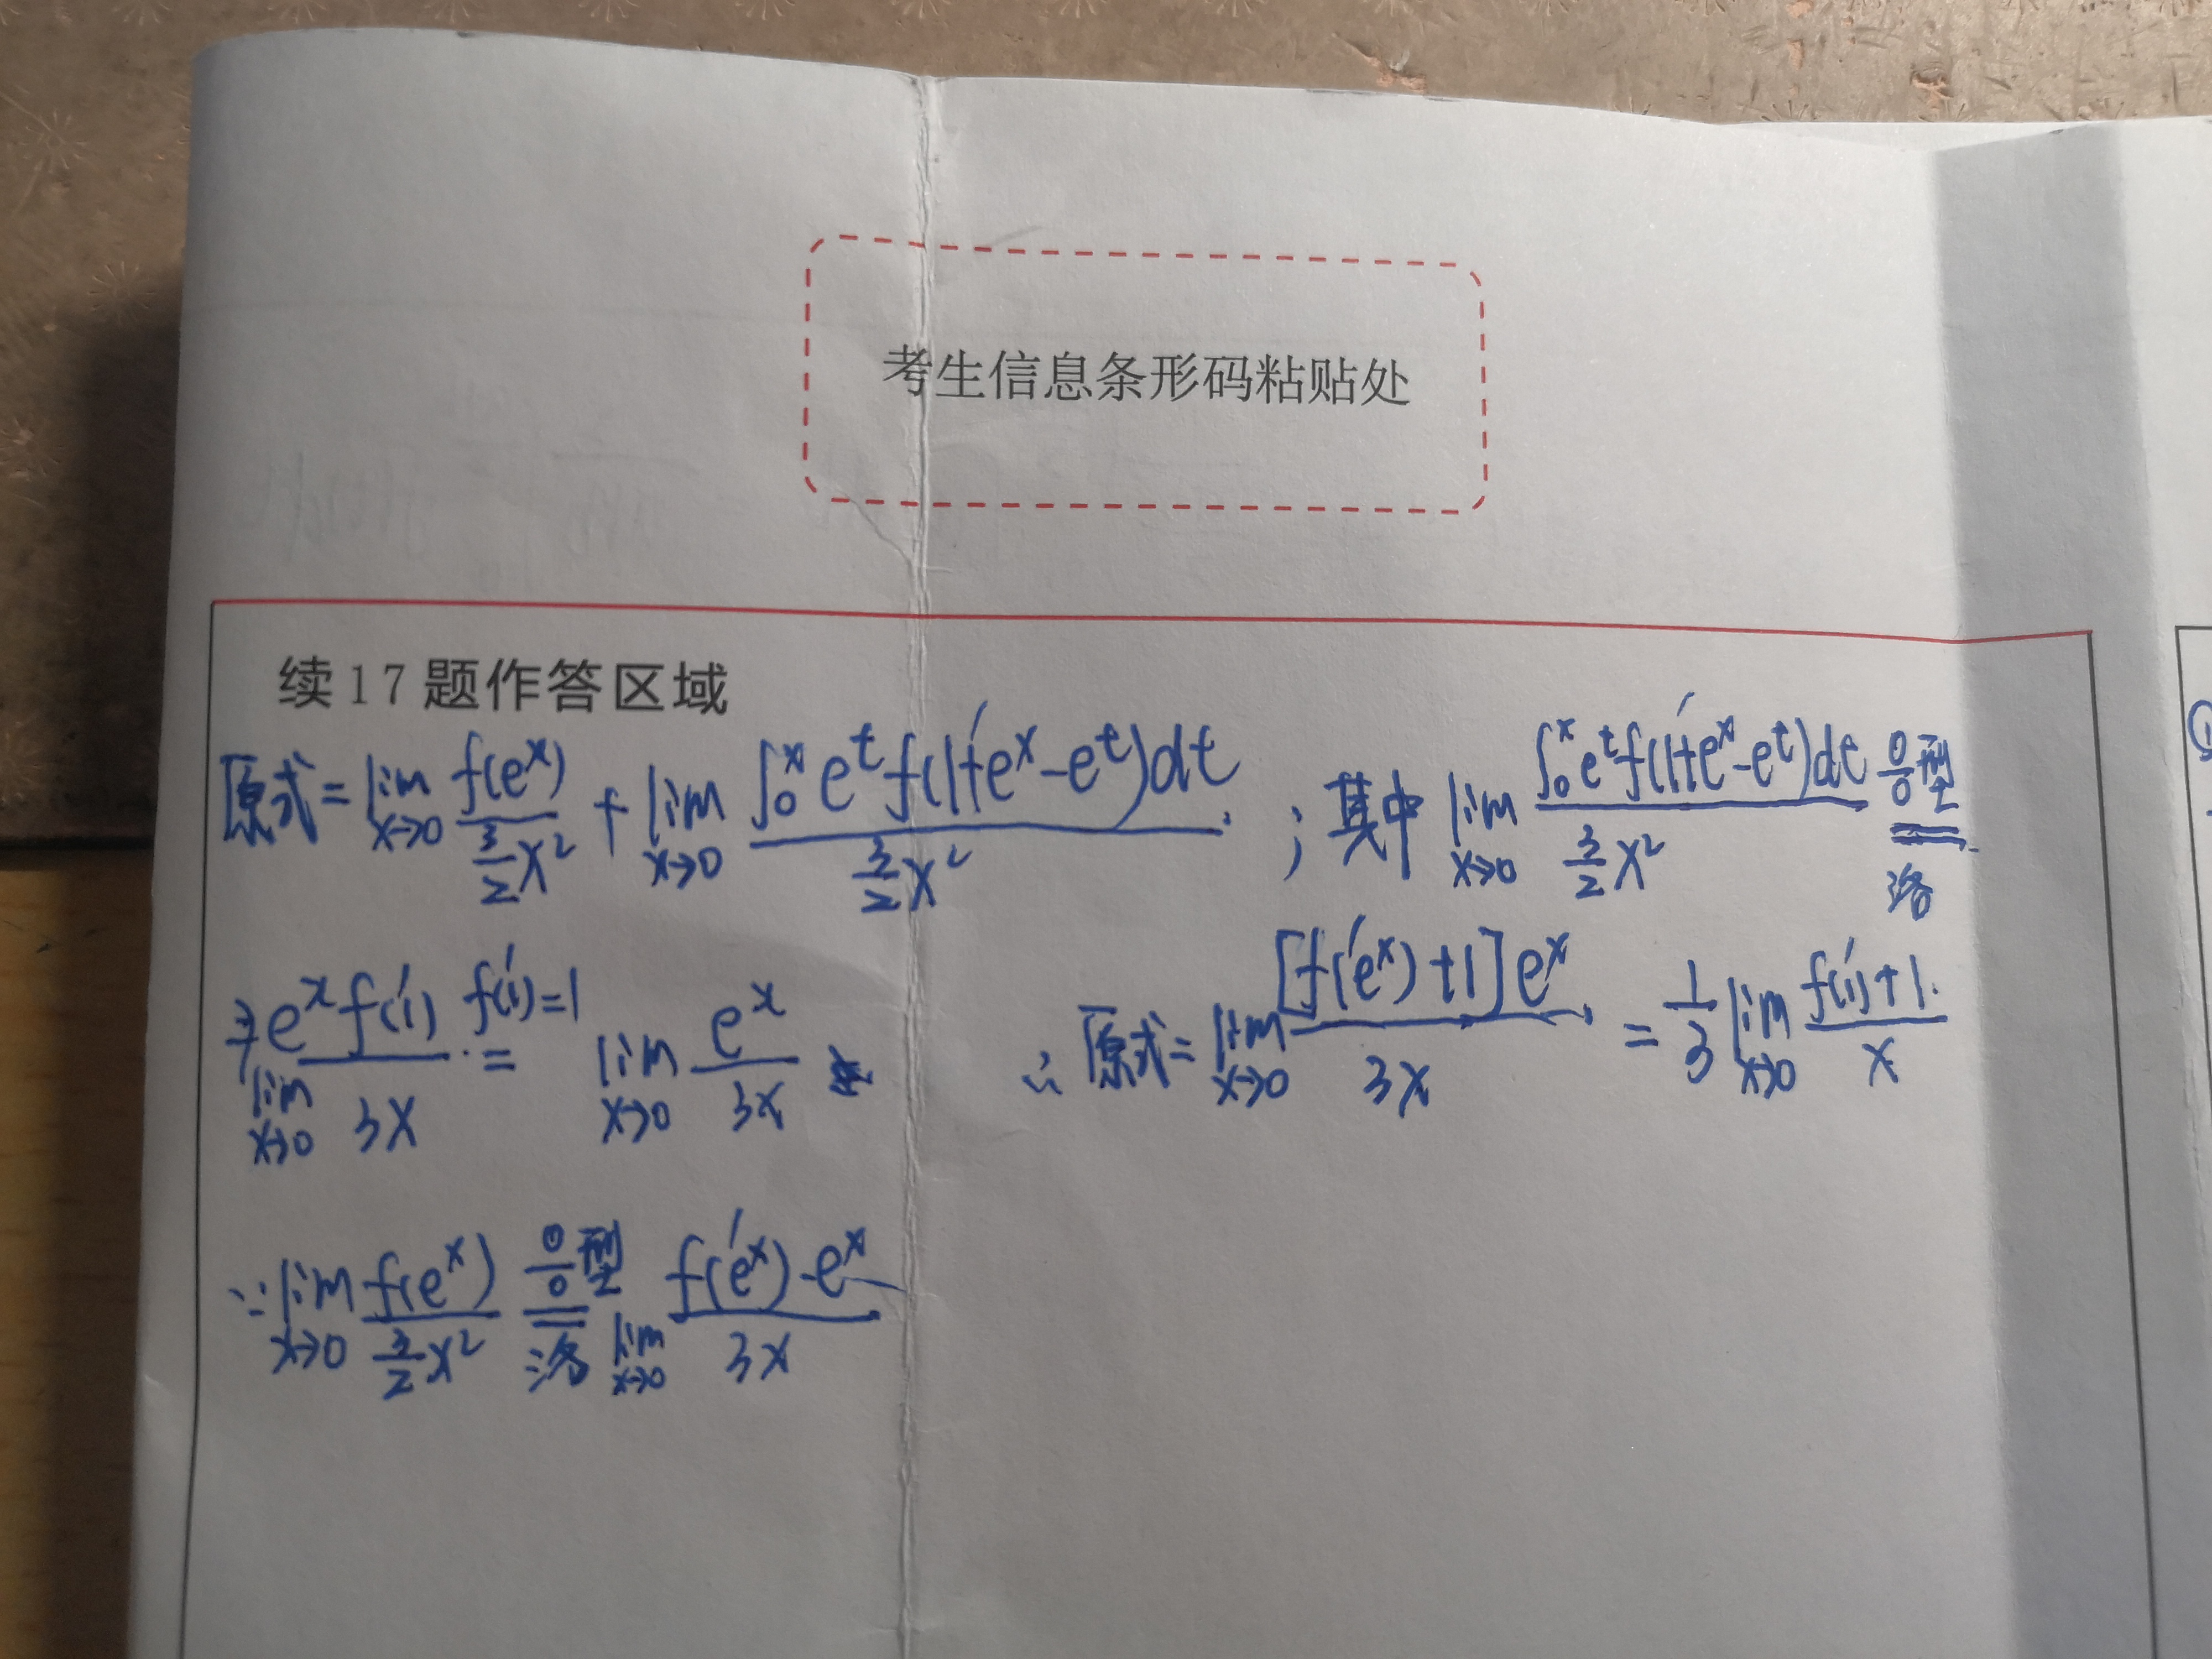 考生信息条形码粘贴处
续17题作答区域
原式 = lim x→0 f(e^x) / (3/2 x²) + lim x→0 ∫₀ˣ e^t f'(1+e^x-e^t)dt / (3/2 x²) ; 其中 lim x→0 ∫₀ˣ e^t f'(1+e^x-e^t)dt / (3/2 x²) 0/0型 洛
lim x→0 e^x f'(1) / 3x f'(1)=1 = lim x→0 e^x / 3x ∴ 原式 = lim x→0 [f'(e^x)+1]e^x / 3x = 1/3 lim x→0 f'(1)+1 / x
∵ lim x→0 f(e^x) / (3/2 x²) 0/0型 洛 lim x→0 f'(e^x)·e^x / 3x